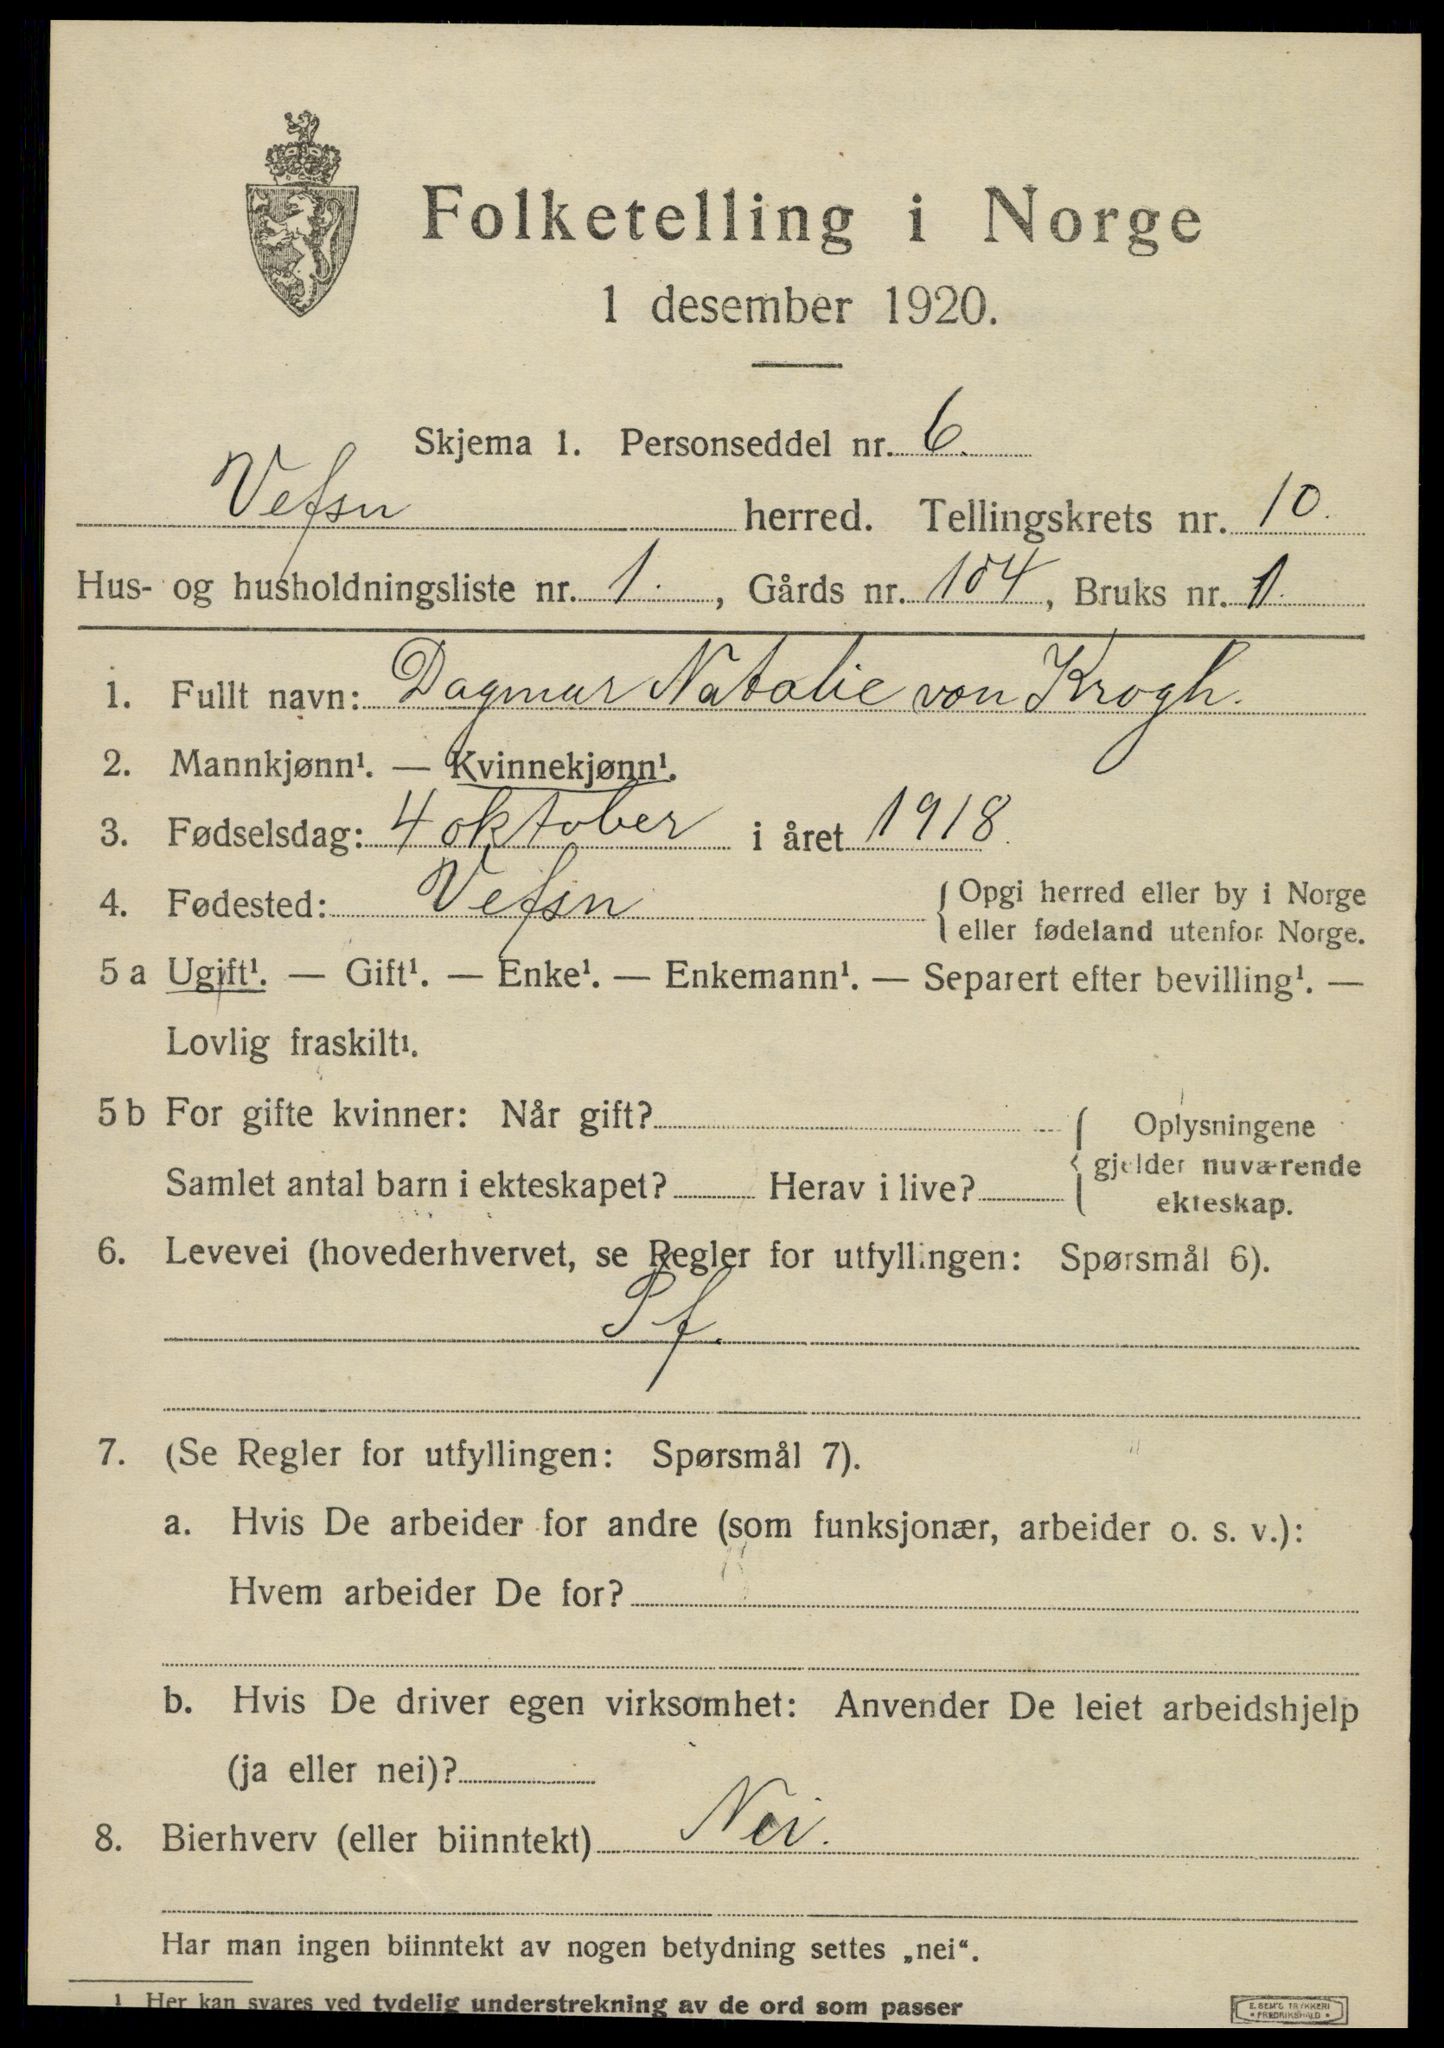 Folketelling i Norge
1 desember 1920.
Skjema 1. Personseddel nr. 6.
Vefsn herred. Tellingskrets nr. 10.
Hus- og husholdningsliste nr. 1., Gårds nr. 104, Bruks nr. 1.
1. Fullt navn: Dagmar Natalie von Krogh.
2. Mannkjønn¹. — Kvinnekjønn¹.
3. Fødselsdag: 4 oktober i året 1918.
4. Fødested: Vefsn { Opgi herred eller by i Norge
eller fødeland utenfor Norge.
5 a Ugift¹. — Gift¹. — Enke¹. — Enkemann¹. — Separert efter bevilling¹. —
Lovlig fraskilt¹.
5 b For gifte kvinner: Når gift? { Oplysningene
gjelder nuværende
Samlet antal barn i ekteskapet? Herav i live? ekteskap.
6. Levevei (hovederhvervet, se Regler for utfyllingen: Spørsmål 6).
Sf.
7. (Se Regler for utfyllingen: Spørsmål 7).
a. Hvis De arbeider for andre (som funksjonær, arbeider o. s. v.):
Hvem arbeider De for?
b. Hvis De driver egen virksomhet: Anvender De leiet arbeidshjelp
(ja eller nei)?
8. Bierhverv (eller biinntekt) Nei.
Har man ingen biinntekt av nogen betydning settes „nei“.
¹ Her kan svares ved tydelig understrekning av de ord som passer
E. SEM'S TRYKKERI
• FREDRIKSHALD •